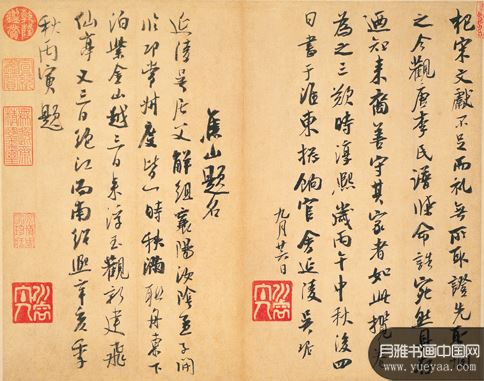 杞宋文獻不足而禮無所取證先聖
之今觀唐李氏譜牒命誥宛然具
迺知來裔善守其家者如此攬卷
為之三歎時淳熙歲丙午中秋後四
日書于淮東總餉官舍延陵吳琚
九月廿六日
焦山題名
延陵吳居父解組襄陽汝陰孟子開
常州度皆一時秩滿聯舟東下
泊紫金山越三日來浮玉觀新建飛
仙亭又三日絕江而南紹熙辛亥季
秋丙寅題
月雅书画中国网
www.yueyaa.com